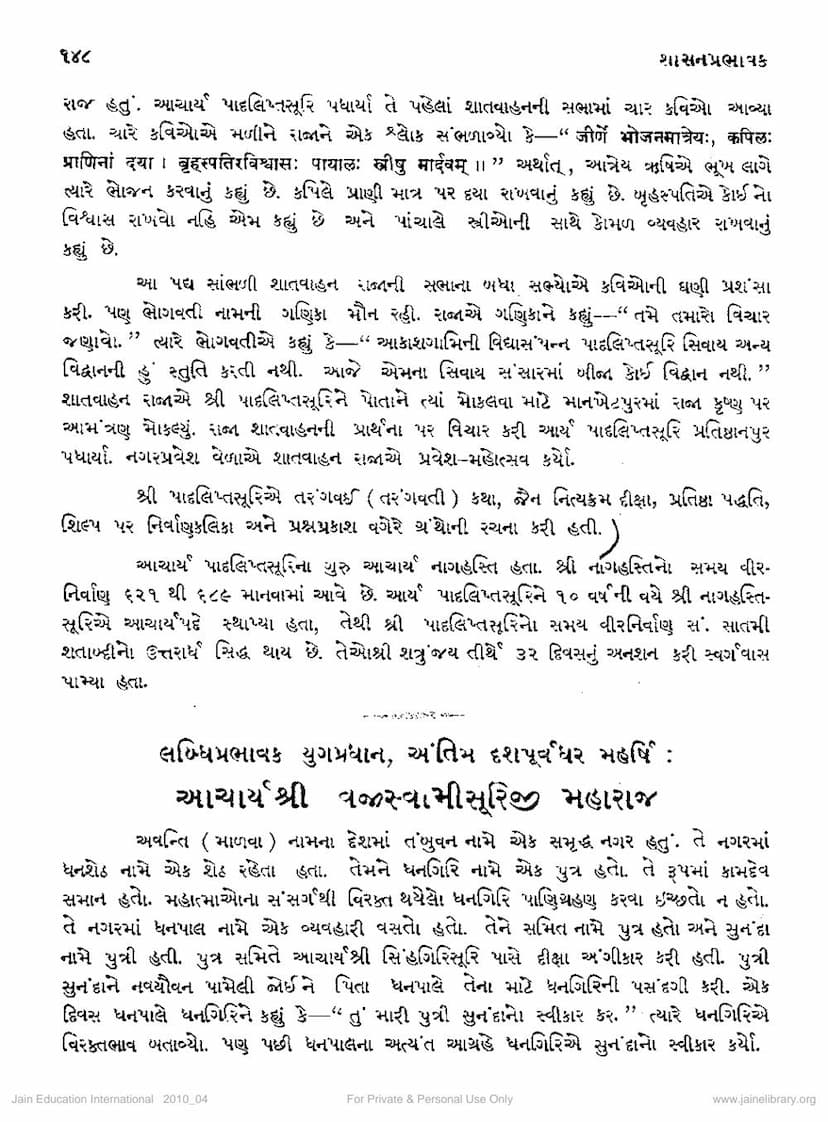 ૧૪૮
શાસનપ્રભાવક
રાજ હતું. આચાર્ય પાદલિપ્તસૂરિ પધાર્યા તે પહેલાં શાતવાહનની સભામાં ચાર કવિઓ આવ્યા
હતા. ચારે કવિઓએ મળીને રાજાને એક શ્લોક સંભળાવ્યો કે—“ जीर्णे भोजनमात्रेयः, कपिलः
प्राणिनां दया । बृहस्पतिरविश्वासः पायालः स्त्रीषु मार्दवम् ।। ” અર્થાત્, આત્રેય ઋષિએ ભૂખ લાગે
ત્યારે ભોજન કરવાનું કહ્યું છે. કપિલે પ્રાણી માત્ર પર દયા રાખવાનું કહ્યું છે. બૃહસ્પતિએ કોઈનો
વિશ્વાસ રાખવો નહિ એમ કહ્યું છે અને પાંચાલે સ્ત્રીઓની સાથે કોમળ વ્યવહાર રાખવાનું
કહ્યું છે.
આ પદ્ય સાંભળી શાતવાહન રાજાની સભાના બધા સભ્યોએ કવિઓની ઘણી પ્રશંસા
કરી. પણ ભોગવતી નામની ગણિકા મૌન રહી. રાજાએ ગણિકાને કહ્યું—“ તમે તમારો વિચાર
જણાવો. ” ત્યારે ભોગવતીએ કહ્યું કે—“ આકાશગામિની વિદ્યાસંપન્ન પાદલિપ્તસૂરિ સિવાય અન્ય
વિદ્વાનની હું સ્તુતિ કરતી નથી. આજે એમના સિવાય સંસારમાં બીજા કોઈ વિદ્વાન નથી. ”
શાતવાહન રાજાએ શ્રી પાદલિપ્તસૂરિને પોતાને ત્યાં મોકલવા માટે માનખેટપુરમાં રાજા કૃષ્ણ પર
આમંત્રણ મોકલ્યું. રાજા શાતવાહનની પ્રાર્થના પર વિચાર કરી આર્ય પાદલિપ્તસૂરિ પ્રતિષ્ઠાનપુર
પધાર્યા. નગરપ્રવેશ વેળાએ શાતવાહન રાજાએ પ્રવેશ-મહોત્સવ કર્યો.
શ્રી પાદલિપ્તસૂરિએ તરંગવઈ ( તરંગવતી ) કથા, જૈન નિત્યક્રમ દીક્ષા, પ્રતિષ્ઠા પદ્ધતિ,
શિલ્પ પર નિર્વાણકલિકા અને પ્રશ્નપ્રકાશ વગેરે ગ્રંથોની રચના કરી હતી.
આચાર્ય પાદલિપ્તસૂરિના ગુરુ આચાર્ય નાગહસ્તિ હતા. શ્રી નાગહસ્તિનો સમય વીર-
નિર્વાણ ૬૨૧ થી ૬૮૯ માનવામાં આવે છે. આર્ય પાદલિપ્તસૂરિને ૧૦ વર્ષની વયે શ્રી નાગહસ્તિ-
સૂરિએ આચાર્યપદે સ્થાપ્યા હતા, તેથી શ્રી પાદલિપ્તસૂરિનો સમય વીરનિર્વાણ સં. સાતમી
શતાબ્દીનો ઉત્તરાર્ધ સિદ્ધ થાય છે. તેઓશ્રી શત્રુંજય તીર્થે ૩૨ દિવસનું અનશન કરી સ્વર્ગવાસ
પામ્યા હતા.
લબ્ધિપ્રભાવક યુગપ્રધાન, અંતિમ દશપૂર્વધર મહર્ષિ :
આચાર્યશ્રી વજ્રસ્વામીસૂરિજી મહારાજ
અવન્તિ ( માળવા ) નામના દેશમાં તંબુવન નામે એક સમૃદ્ધ નગર હતું. તે નગરમાં
ધનશેઠ નામે એક શેઠ રહેતા હતા. તેમને ધનગિરિ નામે એક પુત્ર હતો. તે રૂપમાં કામદેવ
સમાન હતો. મહાત્માઓના સંસર્ગથી વિરક્ત થયેલો ધનગિરિ પાણિગ્રહણ કરવા ઇચ્છતો ન હતો.
તે નગરમાં ધનપાલ નામે એક વ્યવહારી વસતો હતો. તેને સમિત નામે પુત્ર હતો અને સુનંદા
નામે પુત્રી હતી. પુત્ર સમિતે આચાર્યશ્રી સિંહગિરિસૂરિ પાસે દીક્ષા અંગીકાર કરી હતી. પુત્રી
સુનંદાને નવયૌવન પામેલી જોઈને પિતા ધનપાલે તેના માટે ધનગિરિની પસંદગી કરી. એક
દિવસ ધનપાલે ધનગિરિને કહ્યું કે—“ તું મારી પુત્રી સુનંદાનો સ્વીકાર કર. ” ત્યારે ધનગિરિએ
વિરક્તભાવ બતાવ્યો. પણ પછી ધનપાલના અત્યંત આગ્રહે ધનગિરિએ સુનંદાનો સ્વીકાર કર્યો.
Jain Education International 2010_04
For Private & Personal Use Only
www.jainelibrary.org